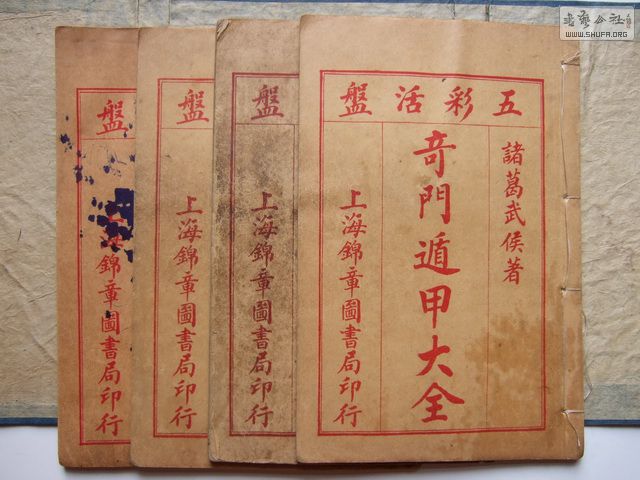 五彩活盤
諸葛武侯著
奇門遁甲大全
上海錦章圖書局印行
盤
上海錦章圖書局印行
盤
上海錦章圖書局印行
盤
上海錦章圖書局印行
WWW.SHUFA.ORG